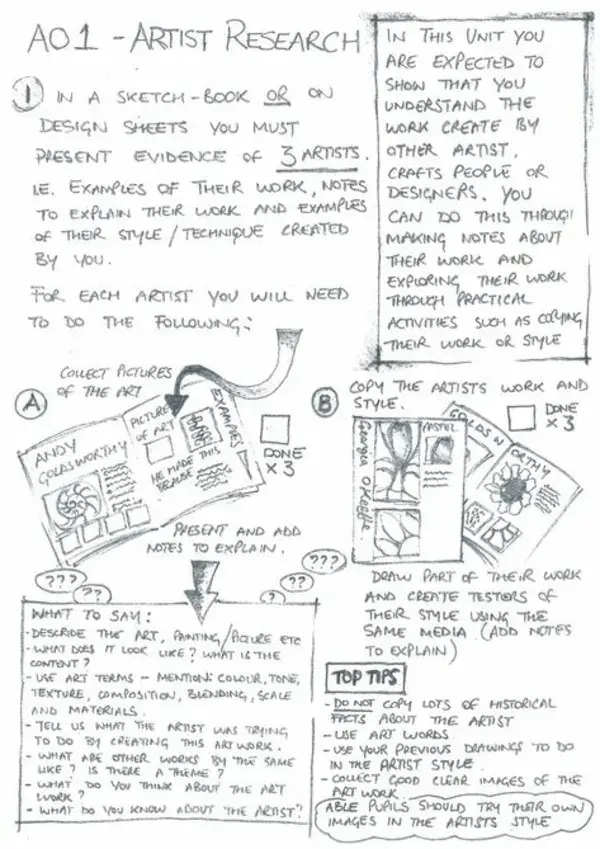 AO1 - ARTIST RESEARCH
1 IN A SKETCH-BOOK OR ON
DESIGN SHEETS YOU MUST
PRESENT EVIDENCE OF 3 ARTISTS.
I.E. EXAMPLES OF THEIR WORK, NOTES
TO EXPLAIN THEIR WORK AND EXAMPLES
OF THEIR STYLE / TECHNIQUE CREATED
BY YOU.
FOR EACH ARTIST YOU WILL NEED
TO DO THE FOLLOWING:
IN THIS UNIT YOU
ARE EXPECTED TO
SHOW THAT YOU
UNDERSTAND THE
WORK CREATE BY
OTHER ARTIST,
CRAFTS PEOPLE OR
DESIGNERS. YOU
CAN DO THIS THROUGH
MAKING NOTES ABOUT
THEIR WORK AND
EXPLORING THEIR WORK
THROUGH PRACTICAL
ACTIVITIES SUCH AS COPYING
THEIR WORK OR STYLE
COLLECT PICTURES
OF THE ART
A
ANDY
GOLDSWORTHY
PICTURE
OF ART
HE MADE THIS
BECAUSE
EXAMPLES
DONE
X 3
PRESENT AND ADD
NOTES TO EXPLAIN.
COPY THE ARTISTS WORK AND
STYLE.
B
Georgia O'Keeffe
PASTEL
GOLDS N
ORTHY
DONE
X 3
DRAW PART OF THEIR WORK
AND CREATE TESTORS OF
THEIR STYLE USING THE
SAME MEDIA (ADD NOTES
TO EXPLAIN)
???
??
??
?
???
WHAT TO SAY:
- DESCRIBE THE ART, PAINTING/PICTURE ETC
- WHAT DOES IT LOOK LIKE? WHAT IS THE
CONTENT?
- USE ART TERMS - MENTION: COLOUR, TONE,
TEXTURE, COMPOSITION, BLENDING, SCALE
AND MATERIALS.
- TELL US WHAT THE ARTIST WAS TRYING
TO DO BY CREATING THIS ART WORK.
- WHAT ARE OTHER WORKS BY THE SAME
LIKE? IS THERE A THEME?
- WHAT DO YOU THINK ABOUT THE ART
WORK?
- WHAT DO YOU KNOW ABOUT THE ARTIST?
TOP TIPS
- DO NOT COPY LOTS OF HISTORICAL
FACTS ABOUT THE ARTIST
- USE ART WORDS
- USE YOUR PREVIOUS DRAWINGS TO DO
IN THE ARTIST STYLE
- COLLECT GOOD CLEAR IMAGES OF THE
ART WORK
ABLE PUPILS SHOULD TRY THEIR OWN
IMAGES IN THE ARTISTS STYLE